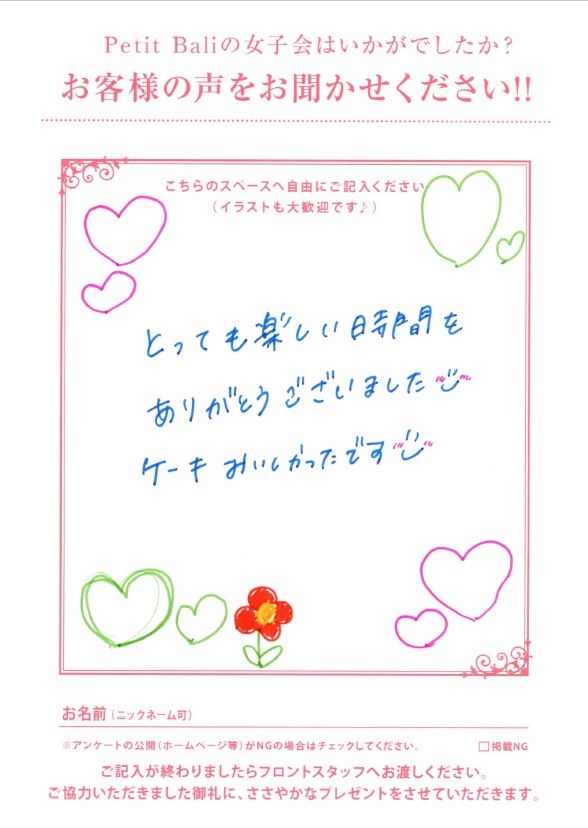 Petit Baliの女子会はいかがでしたか?
お客様の声をお聞かせください!!
こちらのスペースへ自由にご記入ください
(イラストも大歓迎です♪)
とっても楽しい時間を
ありがとうございました
ケーキおいしかったです
お名前(ニックネーム可)
※アンケートの公開(ホームページ等)がNGの場合はチェックしてください。 □掲載NG
ご記入が終わりましたらフロントスタッフへお渡しください。
ご協力いただきました御礼に、ささやかなプレゼントをさせていただきます。